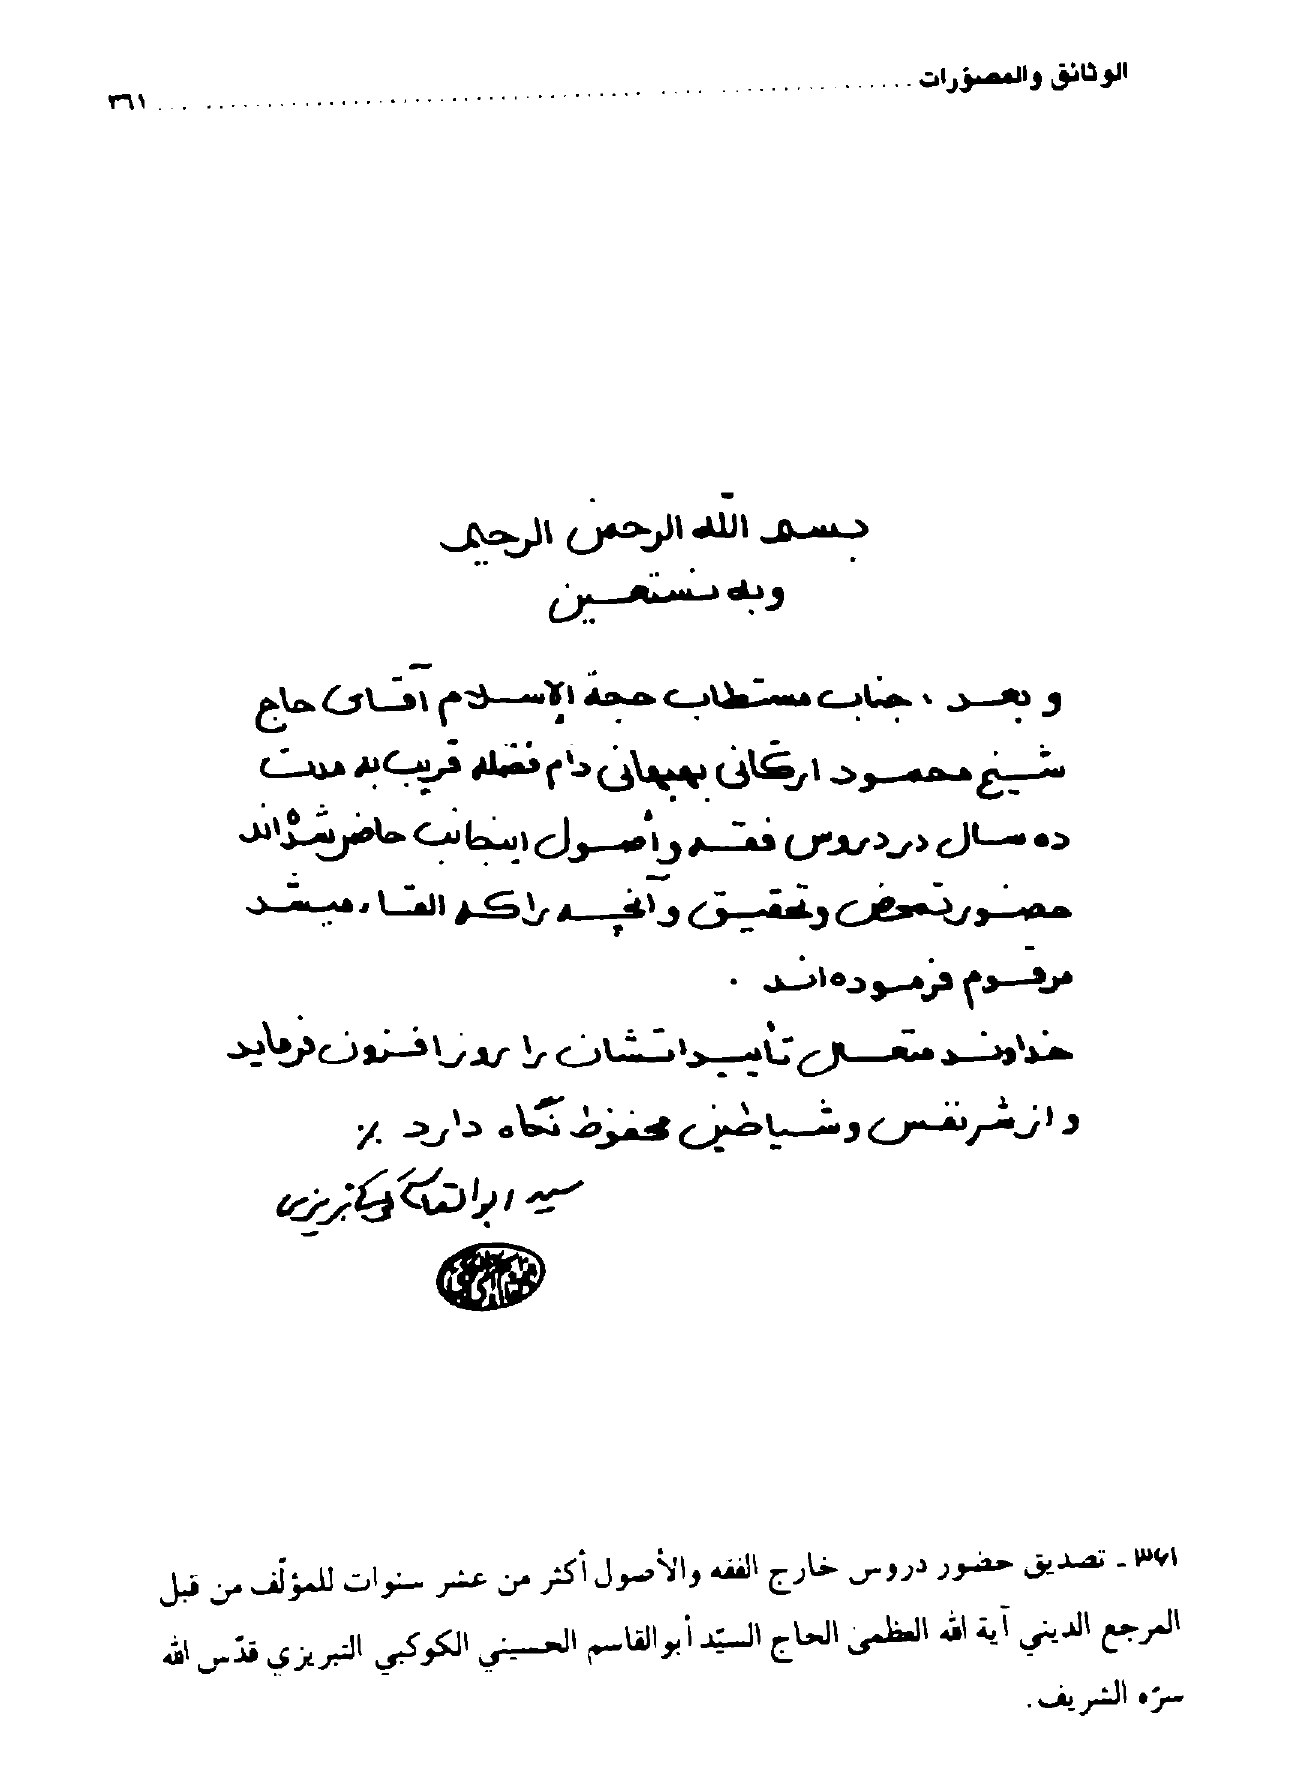 الوثائق والمصوّرات ........................................................ ٣٦١
بسم الله الرحمن الرحيم
وبه نستعين
و بعد ، جناب مستطاب حجة الإسلام آقای حاج
شیخ محمود ارگانی بهبهانی دام فضله قریب به مدت
ده سال در دروس فقه و أصول اینجانب حاضر شده‌اند
حضور تمحض و تحقیق و آنچه را که القاء میشد
مرقوم فرموده‌اند .
خداوند متعال تأییداتشان را روز افزون فرماید
و از شر نفس و شیاطین محفوظ نگاه دارد ٪
سید ابوالقاسم کوکبی تبریزی
٣٧١ ـ تصديق حضور دروس خارج الفقه والأصول أكثر من عشر سنوات للمؤلّف من قبل
المرجع الديني آية الله العظمى الحاج السيّد أبوالقاسم الحسيني الكوكبي التبريزي قدّس الله
سرّه الشريف.